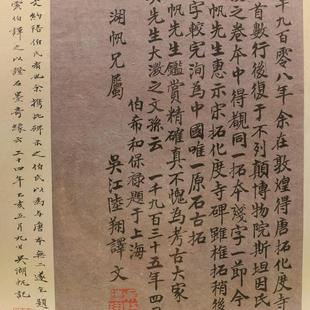 千九百零八年余在敦煌得唐拓化度寺
首數行後復于不列顛博物院斯坦因氏
之卷本中得覩同一拓本殘字一節今
帆先生惠示宋拓化度寺碑雖椎拓稍後
字較完洵為中國唯一原石古拓
帆先生鑑賞精確真不愧為考古大家
先生大澂之文孫云一千九百三十五年四
伯希和保祿題于上海
湖帆兄屬 吳江陸翔譯文
文約陪伯氏者也余攜此碑示之伯氏以為与唐本無二遂乞題
雲伯譯之以證石墨奇緣云二十四年乙亥五月九日吳湖帆記